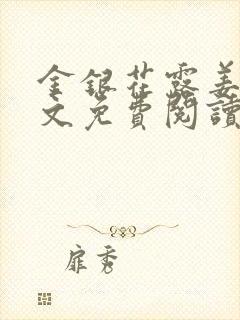 金銀花露姜
文免費閱讀
扉秀